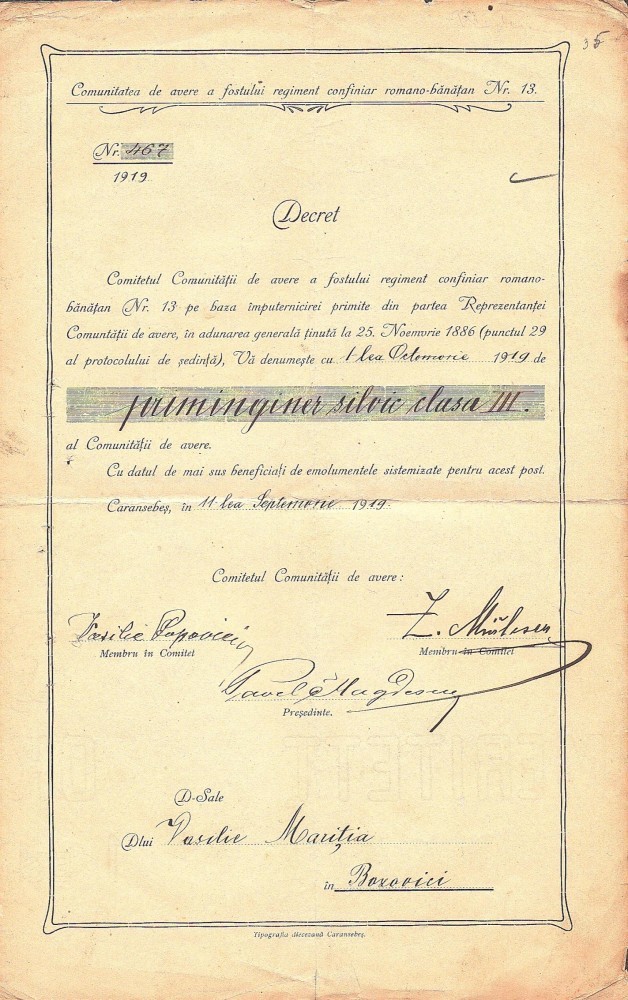 35
Comunitatea de avere a fostului regiment confiniar romano-bănățan Nr. 13.
Nr. 467
1919.
Decret
Comitetul Comunității de avere a fostului regiment confiniar romano-
bănățan Nr. 13 pe baza împuternicirei primite din partea Reprezentanței
Comuntății de avere, în adunarea generală ținută la 25. Noemvrie 1886 (punctul 29
al protocolului de ședință), Vă denumește cu 1 lea Octomvrie 1919 de
priminginer silvic clasa III.
al Comunității de avere.
Cu datul de mai sus beneficiați de emolumentele sistemizate pentru acest post.
Caransebeș, în 11 lea Septemvrie 1919.
Comitetul Comunității de avere:
Vasilie Popovici
Z.
Membru în Comitet
Membru în Comitet
Pavel Magdescu
Președinte.
D-Sale
Dlui Vasilie Mariția
în Bozovici
Tipografia diecezană Caransebeș.